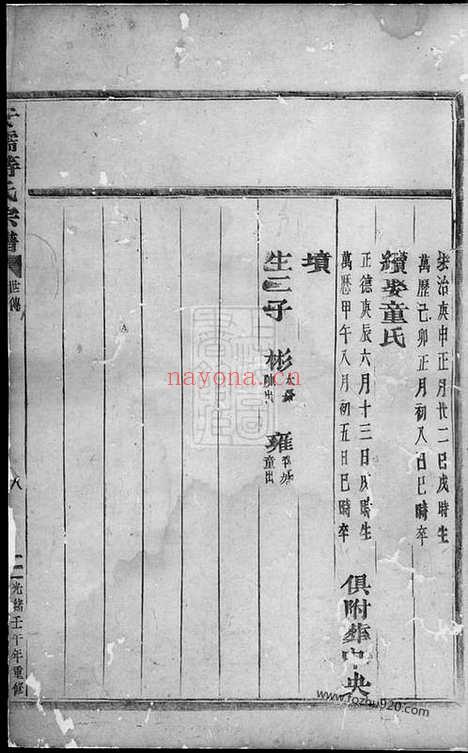 治庚申正月廿二巳戌時生
萬歷己卯正月初八日巳時卒
續娶童氏
正德庚辰六月十三日戌時生
萬歷甲午八月初五日巳時卒
俱附葬中央
墳
生二子
彬
雍
童出
氏宗譜
世傳
八
光緒壬午年重修
nayona.cn
www.fozhu920.com